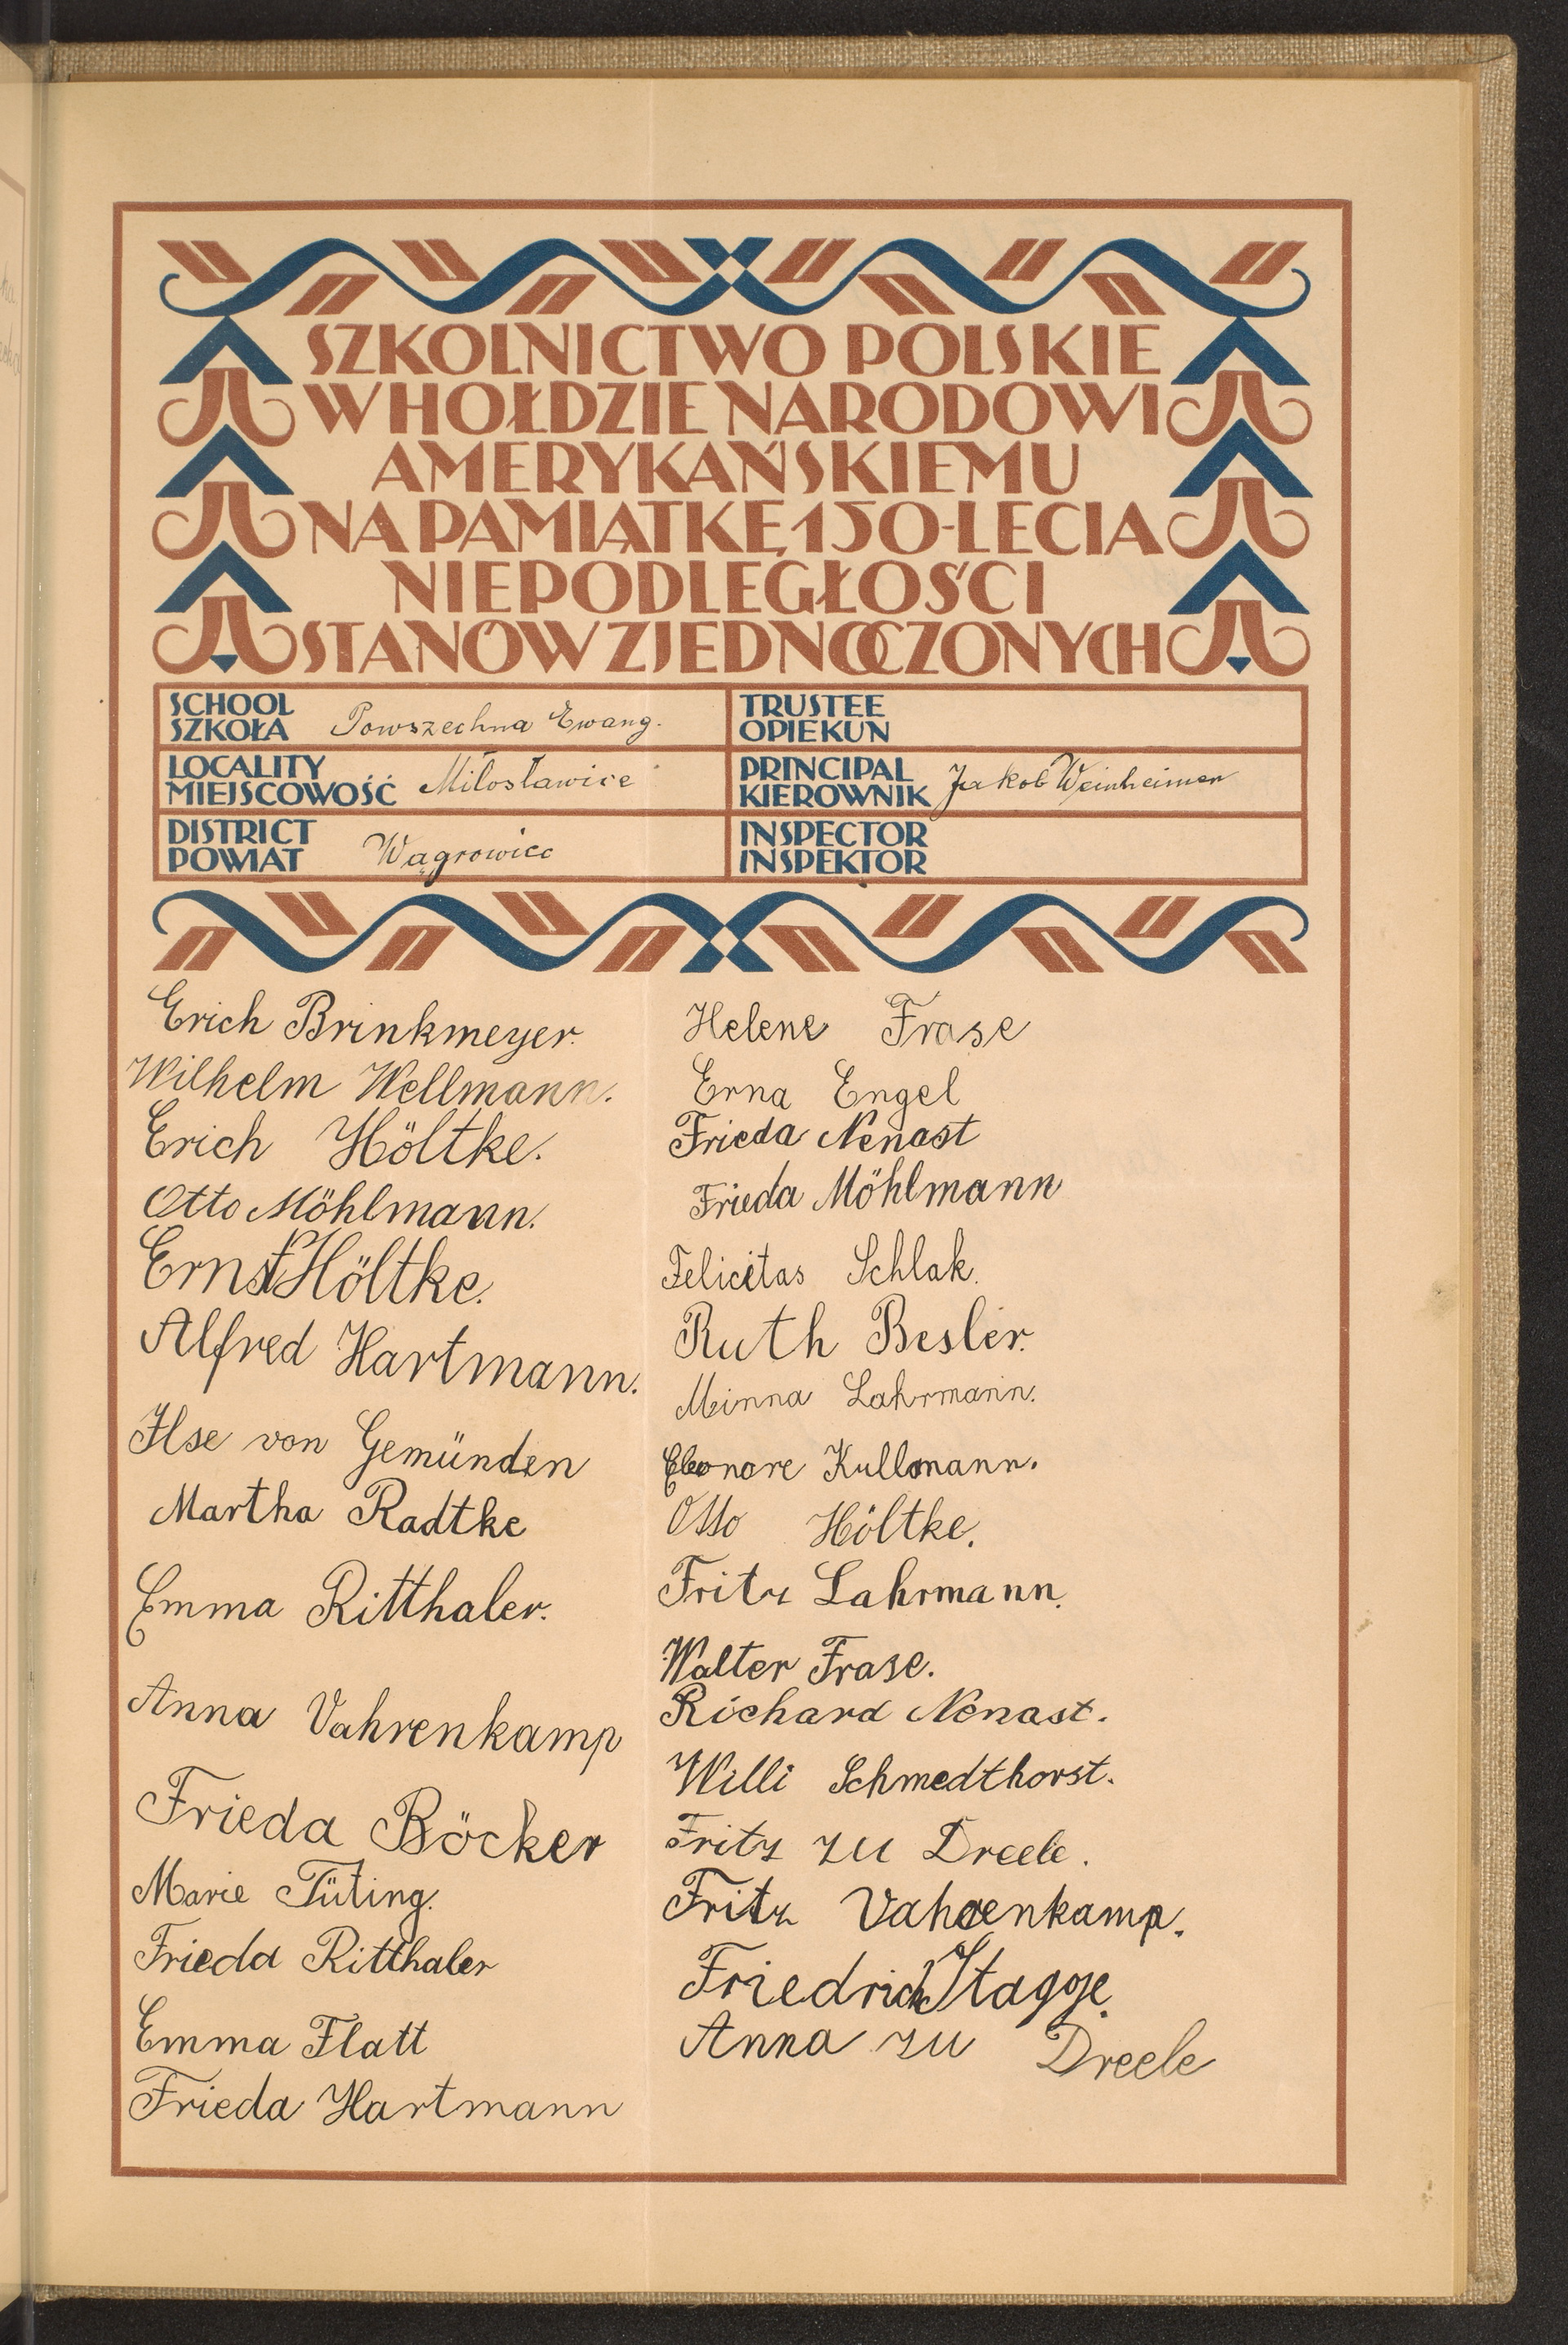 SZKOLNICTWO POLSKIE
W HOŁDZIE NARODOWI
AMERYKAŃSKIEMU
NA PAMIĄTKĘ 150-LECIA
NIEPODLEGŁOŚCI
STANÓW ZJEDNOCZONYCH
SCHOOL
SZKOŁA Powszechna Ewang.
TRUSTEE
OPIEKUN
LOCALITY
MIEJSCOWOŚĆ Miłosławice
PRINCIPAL
KIEROWNIK Jakob Weinheimer
DISTRICT
POWIAT Wągrowiec
INSPECTOR
INSPEKTOR
Erich Brinkmeyer.
Wilhelm Wellmann.
Erich Höltke.
Otto Möhlmann.
Ernst Höltke.
Alfred Hartmann.
Ilse von Gemünden
Martha Radtke
Emma Ritthaler.
Anna Vahrenkamp
Frieda Böcker
Marie Tüting.
Frieda Ritthaler
Emma Flatt
Frieda Hartmann
Helene Frase
Erna Engel
Frieda Nenast
Frieda Möhlmann
Felicitas Schlak.
Ruth Besler.
Minna Lahrmann.
Eleonore Kullmann.
Otto Höltke.
Fritz Lahrmann.
Walter Frase.
Richard Nenast.
Willi Schmedthorst.
Fritz zu Dreele.
Fritz Vahrenkamp.
Friedrich Stagge.
Anna zu Dreele